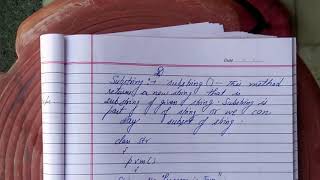 Date
Substring :→ substring() - this method
returns a new string that is
substring of given string. Substring is
part of string or we can
say subset of string.
class str
{
p v m ()